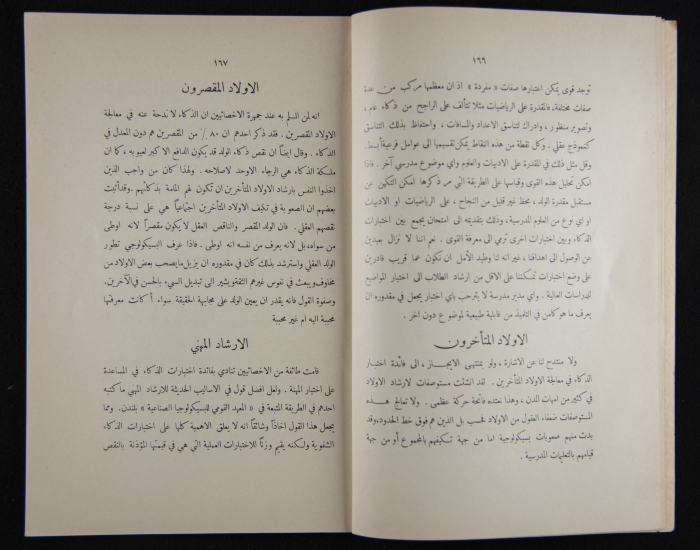 ١٦٦
توجد قوى يمكن اعتبارها صفات « مفردة » اذ ان معظمها مركب من عدة
صفات مختلفة. فالمقدرة على الرياضيات مثلا تتألف على الراجح من ذكاء عام ،
وتصوير منظور ، وادراك لتناسق الاعداد والمسافات ، واحتفاظ بذلك التناسق
كنموذج عقلي . وكل نقطة من هذه النقاط يمكن تقسيمها الى عوامل فرعية أبسط.
وقل مثل ذلك في المقدرة على الادبيات والعلوم واي موضوع مدرسي آخر . فاذا
امكن تحليل هذه القوى وقياسها على الطريقة التي مر ذكرها امكن التكهن عن
مستقبل مقدرة الولد ، بحظ غير قليل من النجاح ، على الرياضيات او الادبيات
او اي نوع من العلوم المدرسية ، وذلك بتقديمه الى امتحان يجمع بين اختبارات
الذكاء وبين اختبارات اخرى ترمي الى معرفة القوى . نعم اننا لا نزال بعيدين
عن الوصول الى اهدافنا ، غير انه لنا وطيد الأمل ان نكون عما قريب قادرين
على وضع اختبارات تمكننا على الاقل من ارشاد الطلاب الى اختيار المواضيع
للدراسات العالية . واي مدير مدرسة لا يرحب باي اختبار يجعل في مقدوره ان
يعرف ما هو كامن في التلميذ من قابلية طبيعية لموضوع دون اخر .
الاولاد المتأخرون
ولا منتدح لنا عن الاشارة ، ولو بمنتهى الايجاز ، الى فائدة اختبار
الذكاء في معالجة الاولاد المتأخرين . لقد انشئت مستوصفات لارشاد الاولاد
في كثير من امهات المدن ، وهذا نعتده فاتحة حركة عظمى . ولا تعالج هذه
المستوصفات ضعفاء العقول من الاولاد فحسب بل الذين هم فوق خط الحدود، وقد
بدت منهم صعوبات بسيكولوجية اما من جهة تكيفهم بالمجموع أو من جهة
قيامهم بالتعلمات المدرسية .
١٦٧
الاولاد المقصرون
انه لمن المسلم به عند جمهرة الاخصائيين ان الذكاء لا ندحة عنه في معالجة
الاولاد المقصرين . فقد ذكر احدهم ان ٨٠ /٠ من المقصرين هم دون المعدل في
الذكاء . وقال ايضاً ان نقص ذكاء الولد قد يكون الدافع الاكبر لعيوبه ، كما ان
ملكة الذكاء هي الرجاء الاوحد لاصلاحه . ولهذا كان من واجب الذين
اخذوا النفس بارشاد الاولاد المتأخرين ان تكون لهم المامة بذكائهم . وقد أثبت
بعضهم ان الصعوبة في تكيف الاولاد المتأخرين اجتماعياً هي على نسبة درجة
نقصهم العقلي . فان الولد المقصر والناقص العقل لا يكون مقصراً لانه اوطى
من سواه، بل لانه يعرف من نفسه انه اوطى . فاذا عرف البسيكولوجي تطور
الولد العقلي واسترشد بذلك كان في مقدوره ان يزيل ما يصحب بعض الاولاد من
مخاوف ويبعث في نفوس غيرهم الثقة ويشير الى تبديل السيء بالحسن في الآخرين.
وصفوة القول فانه يقدر ان يعين الولد على مجابهة الحقيقة سواء أ كانت معرفتها
محببة اليه ام غير محببة
الارشاد المهني
قامت طائفة من الاخصائيين تنادي بفائدة اختبارات الذكاء في المساعدة
على اختيار المهنة . ولعل افضل قول في الاساليب الحديثة للارشاد المهني ما كتبه
احدهم في الطريقة المتبعة في « المعهد القومي للبسيكولوجيا الصناعية » بلندن . ومما
يجعل هذا القول اخاذاً وشائقاً انه لا يعلق الاهمية كلها على اختبارات الذكاء
الشفوية ولكنه يقيم وزناً للاختبارات العملية التي هي في قيمتها المؤذنة بالنقص